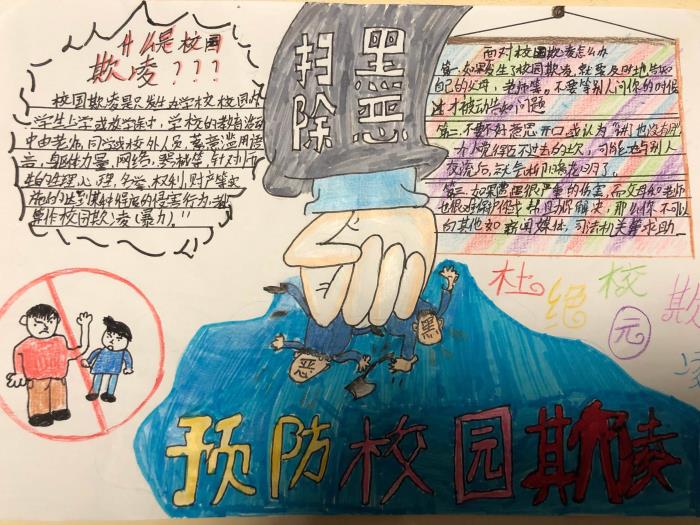 什么是校园
欺凌???
校园欺凌是只发生办学校校园内
学生上学或放学途中,学校的教育活动
中由老师,同学或校外人员,蓄意滥用语
言、躯体力量、网络、器械等,针对
的生理、心理、名誉、权利、财产等实
施的达到某种程度的侵害行为
算作校园欺凌(暴力)。"
扫除
黑恶
面对校园欺凌怎么办
第一.如果发生了校园欺凌,就要及时地告知
自己的父母,老师等。不要等别人问你的时候
才被动告知问题
第二.不要不好意思开口,或认为"讲"也没有用
才觉得万不过去的上次,可能地与别人
交流后,就
第三.如果遭遇很严重的伤害,而父母和老师
也很难保护你或帮助你解决,那么你不可以
向其他如新闻媒体,司法机关等求助
恶
黑
杜绝校园欺凌
预防校园欺凌